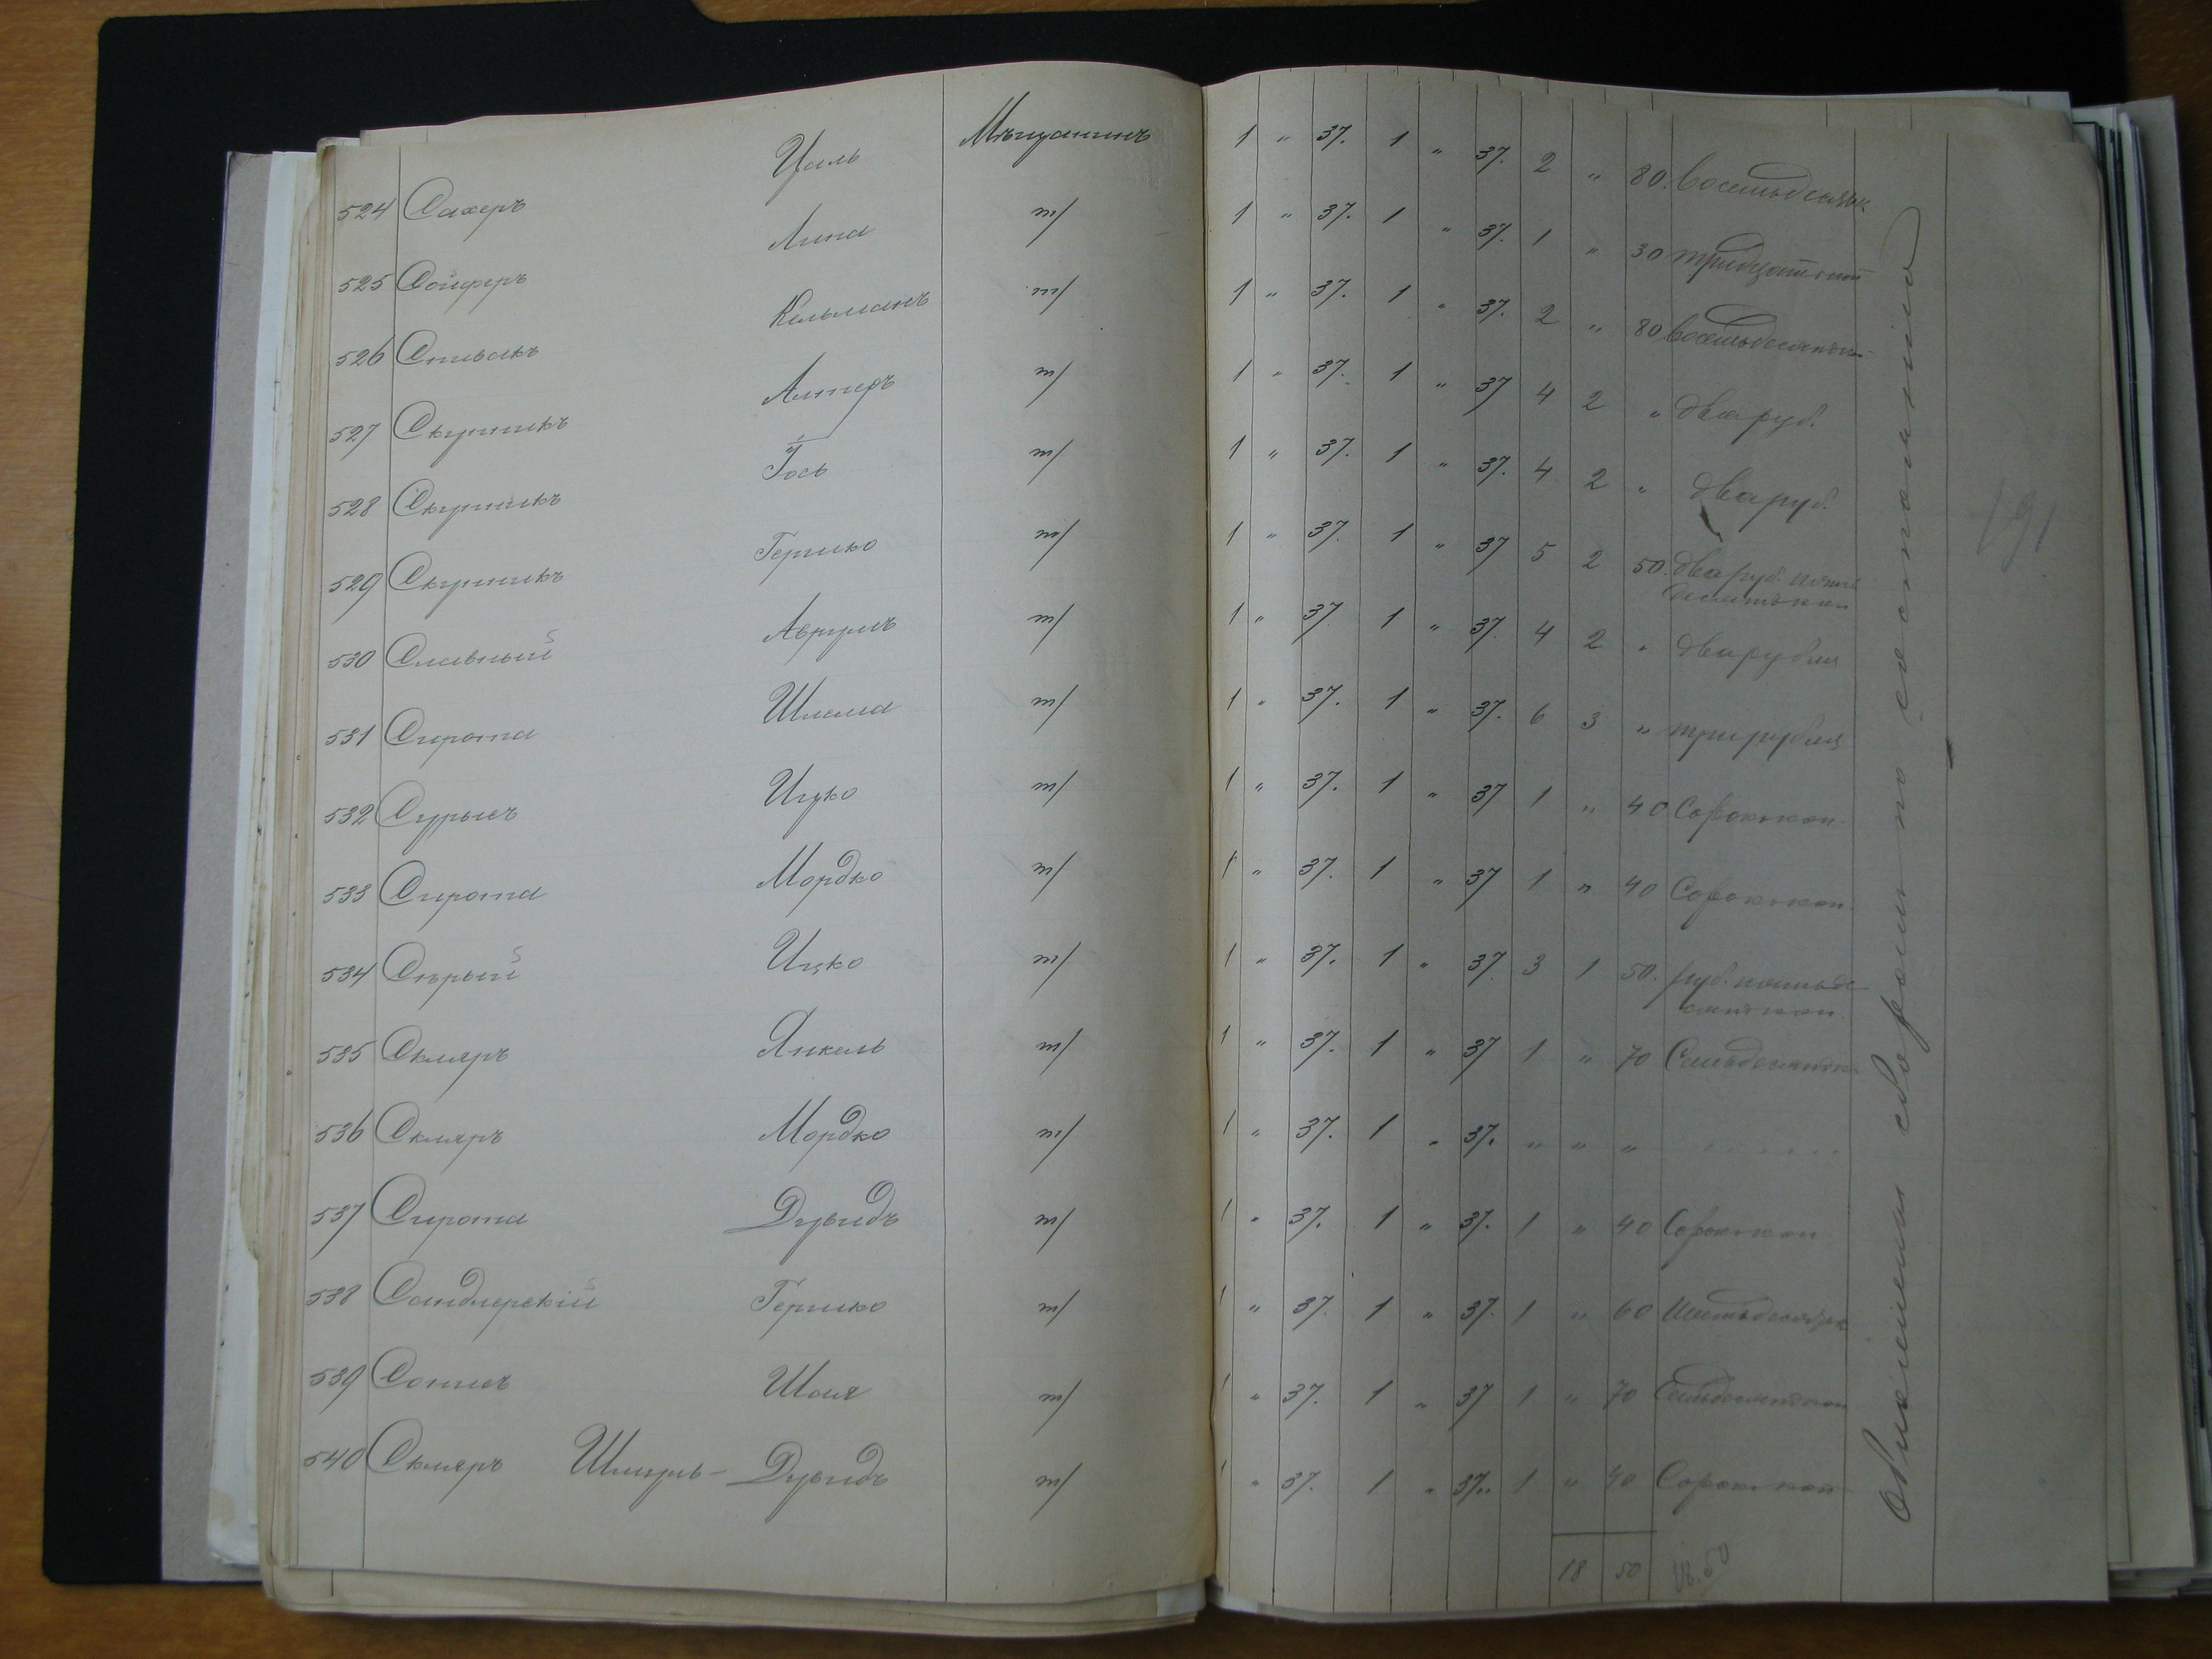 524 Сахеръ Цаль Мѣщанинъ 1 " 37. 1 " 37. 2 " 80. восемьдесятк.
525 Сойферъ Липа т/ 1 " 37. 1 " 37. 1 " 30 тридцать коп
526 Спивакъ Кельманъ т/ 1 " 37. 1 " 37. 2 " 80 восемьдесятъ к.
527 Скурникъ Алтеръ т/ 1 " 37. 1 " 37 4 2 " два руб.
528 Скурникъ Іось т/ 1 " 37. 1 " 37. 4 2 " два руб.
529 Скурникъ Гершко т/ 1 " 37. 1 " 37 5 2 50. два руб. пять
десятъ коп
530 Славный Аврумъ т/ 1 " 37 1 " 37. 4 2 " два рубля
531 Сирота Шлема т/ 1 " 37. 1 " 37. 6 3 " три рубля
532 Сурысъ Ицко т/ 1 " 37. 1 " 37 1 " 40 Сорок. коп
533 Сирота Мордко т/ 1 " 37. 1 " 37 1 " 40 Сорок. коп
534 Сѣрый Ицко т/ 1 " 37. 1 " 37. 3 1 50. руб. пятьде
сятъ коп.
535 Скляръ Янкель т/ 1 " 37. 1 " 37 1 " 70 Семьдесятъ к.
536 Скляръ Мордко т/ 1 " 37. 1 " 37. " " "
537 Сирота Дувидъ т/ 1 " 37. 1 " 37. 1 " 40 Сорок. коп
538 Сандлерскій Гершко т/ 1 " 37. 1 " 37. 1 " 60 Шестьдесят к
539 Шая т/ 1 " 37. 1 " 37 1 " 70 Семьдесятъ коп
540 Скляръ Шмуль-Дувидъ т/ 1 " 37. 1 " 37. 1 " 40 Сорок. коп
18 50 18.50
сборомъ по состоянію
191